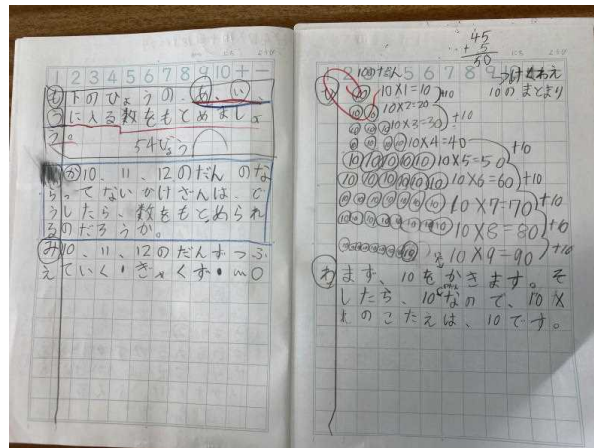 1 2 3 4 5 6 7 8 9 10 + −
も 下のひょうの、あ、い、
うに入る数をもとめましょ
う。
54
か 10、11、12のだんのな
らってないかけざんは、ど
うしたら、数をもとめられ
るのだろうか。
み 10、11、12のだん ずつ ふ
え ていく・ぎゃく
45
+ 5
50
10のだん
10のまとまり
10 × 1 = 10
10 × 2 = 20
10 × 3 = 30
10 × 4 = 40
10 × 5 = 50
10 × 6 = 60
10 × 7 = 70
10 × 8 = 80
10 × 9 = 90
+10
+10
+10
+10
+10
+10
+10
わ まず、10をかきます。そ
したら、10なので、10×
1のこたえは、10です。